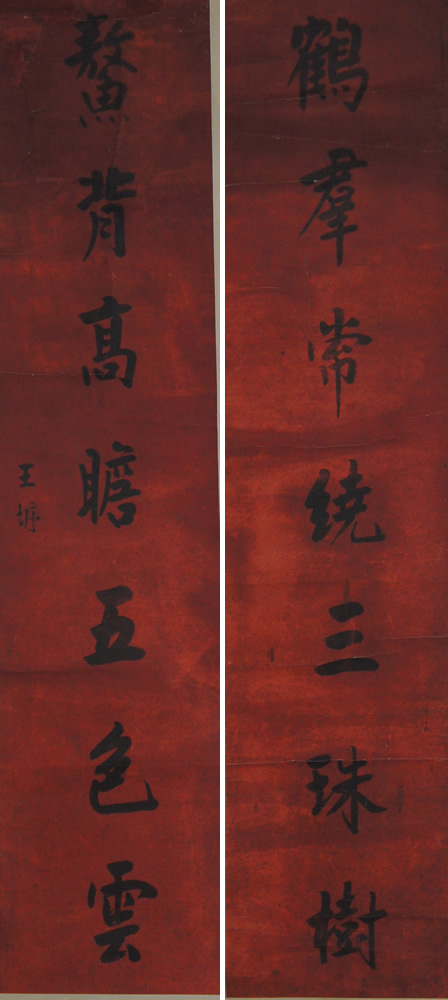 鶴羣常繞三珠樹
鰲背高瞻五色雲
王墀